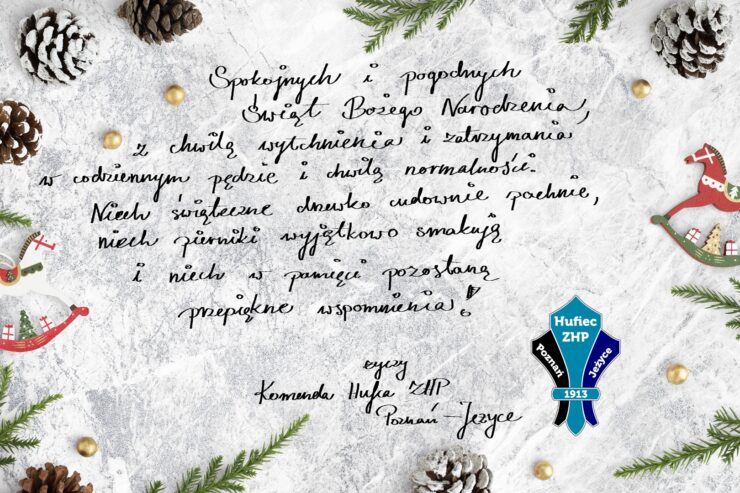 Spokojnych i pogodnych
Świąt Bożego Narodzenia,
z chwilą wytchnienia i zatrzymania
w codziennym pędzie i chwilą normalności.
Niech świąteczne drzewko cudownie pachnie,
niech pierniki wyjątkowo smakują
i niech w pamięci pozostaną
przepiękne wspomnienia!
życzy
Komenda Hufca ZHP
Poznań-Jeżyce
Hufiec
ZHP
Poznań
Jeżyce
1913